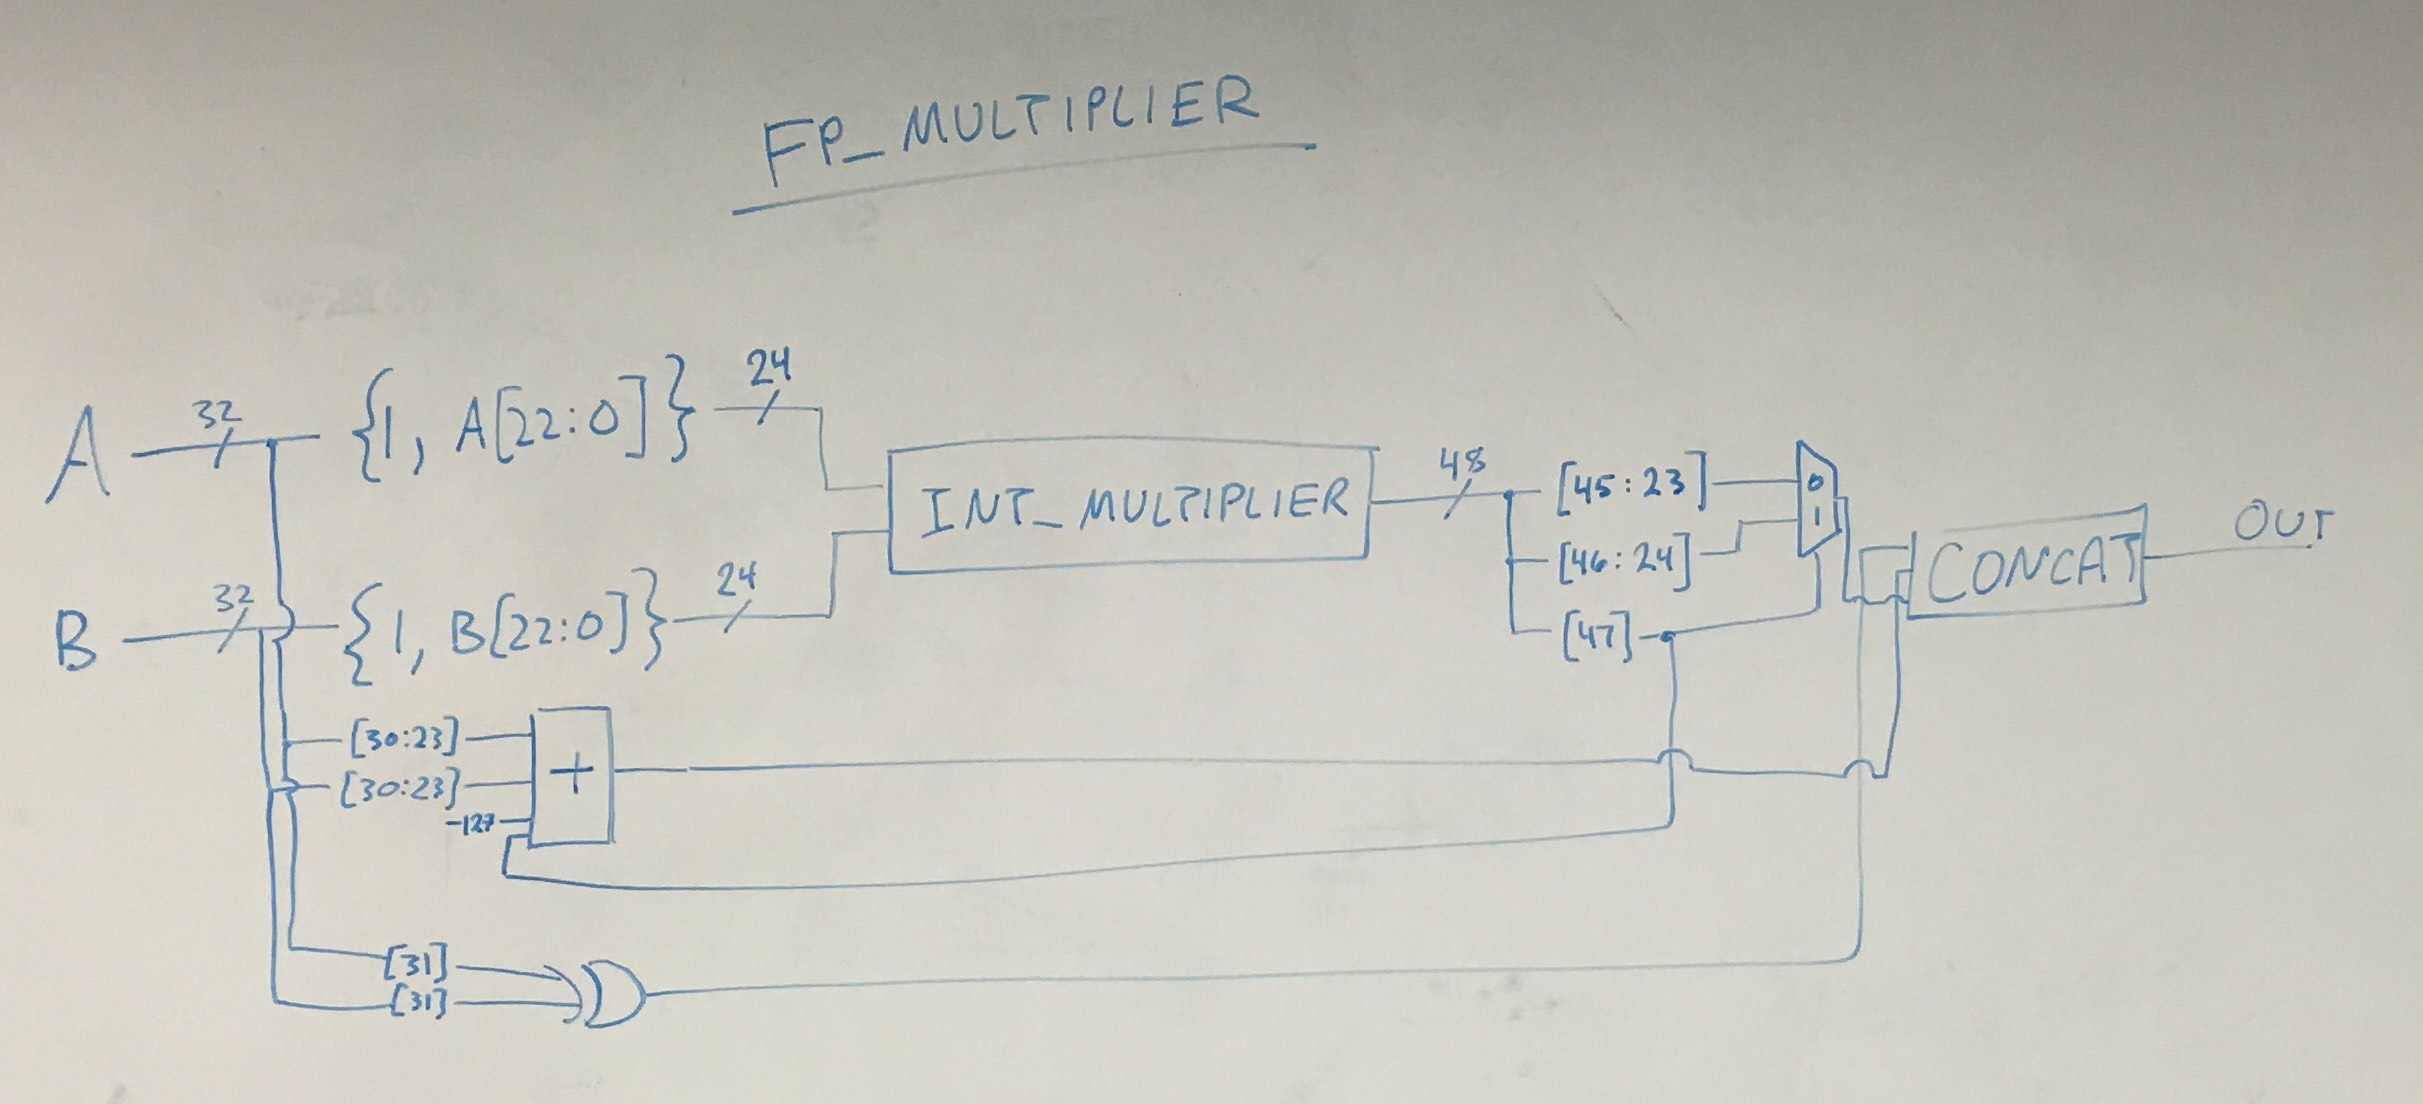 FP_MULTIPLIER
A 32 {1, A[22:0]} 24
B 32 {1, B[22:0]} 24
INT_MULTIPLIER
48
[45:23]
[46:24]
[47]
0
1
CONCAT
OUT
[30:23]
[30:23]
-127
+
[31]
[31]